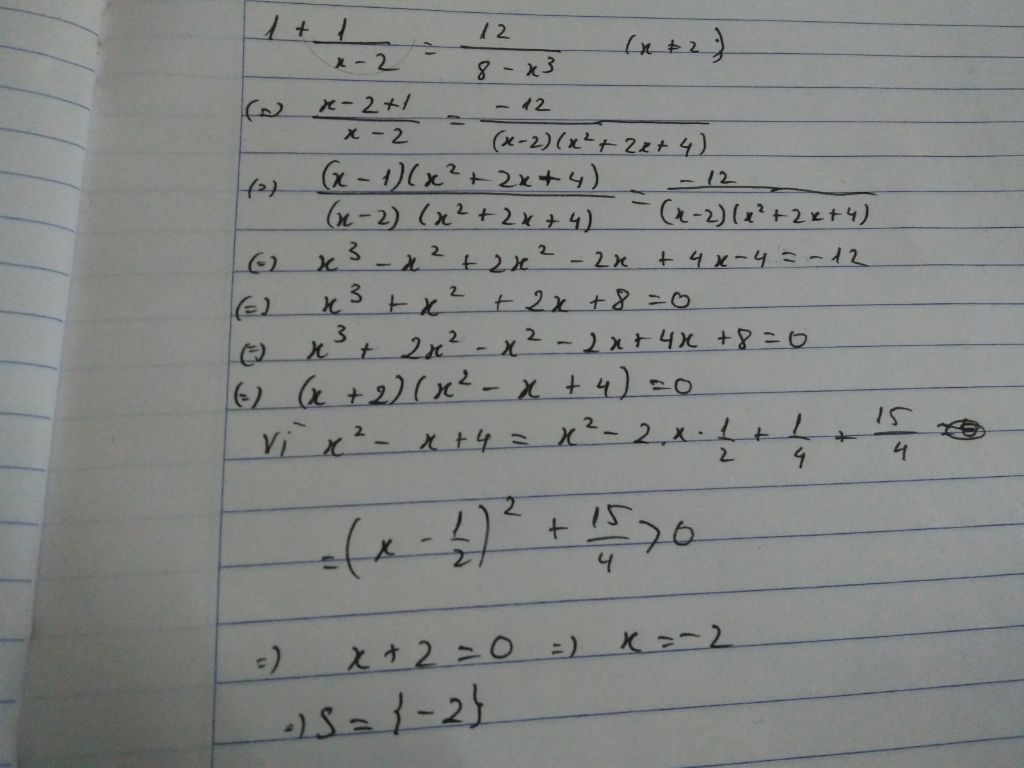 1 + 1/(x-2) = 12/(8-x³) (x ≠ 2)
(=) (x-2+1)/(x-2) = -12/((x-2)(x²+2x+4))
(=) ((x-1)(x²+2x+4))/((x-2)(x²+2x+4)) = -12/((x-2)(x²+2x+4))
(=) x³ - x² + 2x² - 2x + 4x - 4 = -12
(=) x³ + x² + 2x + 8 = 0
(=) x³ + 2x² - x² - 2x + 4x + 8 = 0
(=) (x+2)(x² - x + 4) = 0
Vì x² - x + 4 = x² - 2.x.1/2 + 1/4 + 15/4
= (x - 1/2)² + 15/4 > 0
=) x + 2 = 0 =) x = -2
=) S = {-2}